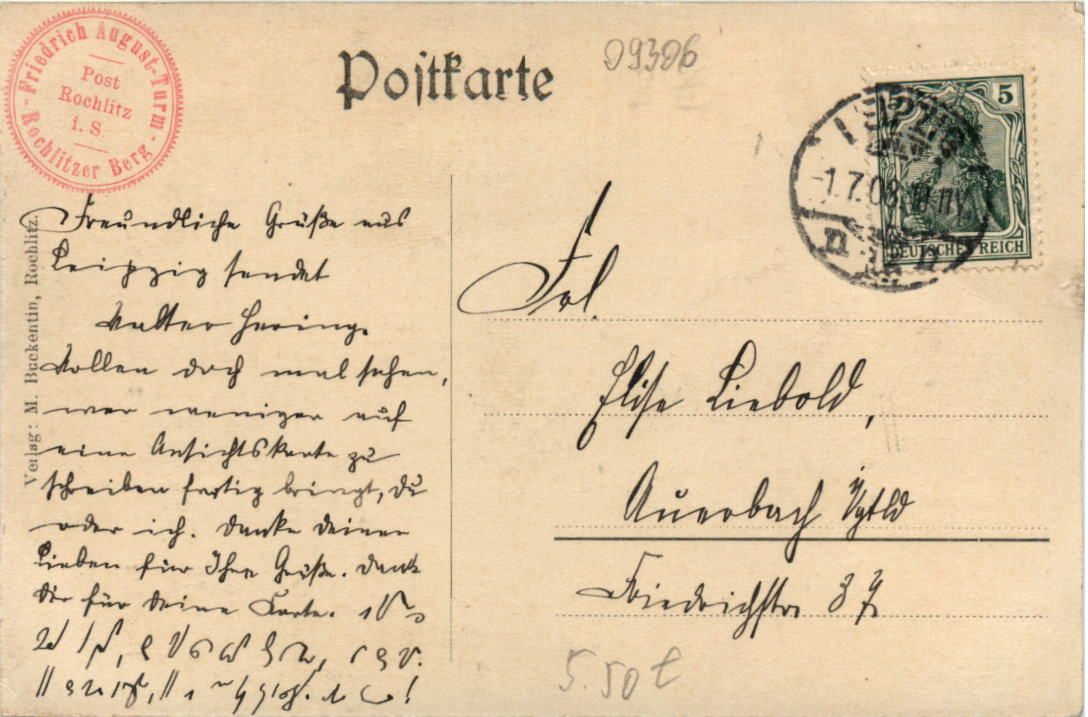 Friedrich August-Turm
Post
Rochlitz
i. S.
Rochlitzer Berg
Postkarte
09306
5
LEIPZIG
1.7.08
DEUTSCHES REICH
Verlag: M. Buckentin, Rochlitz.
Freundliche Grüße aus
Leipzig sendet
Walter Hering.
Wollen doch mal sehen,
wer weniger auf
eine Ansichtskarte zu
schreiben fertig bringt, du
oder ich. Danke deinen
Lieben für Ihre Grüße. Dank
dir für deine Karte.
Frl.
Elise Liebold,
Auerbach Vgtld
Friedrichstr.
5.50